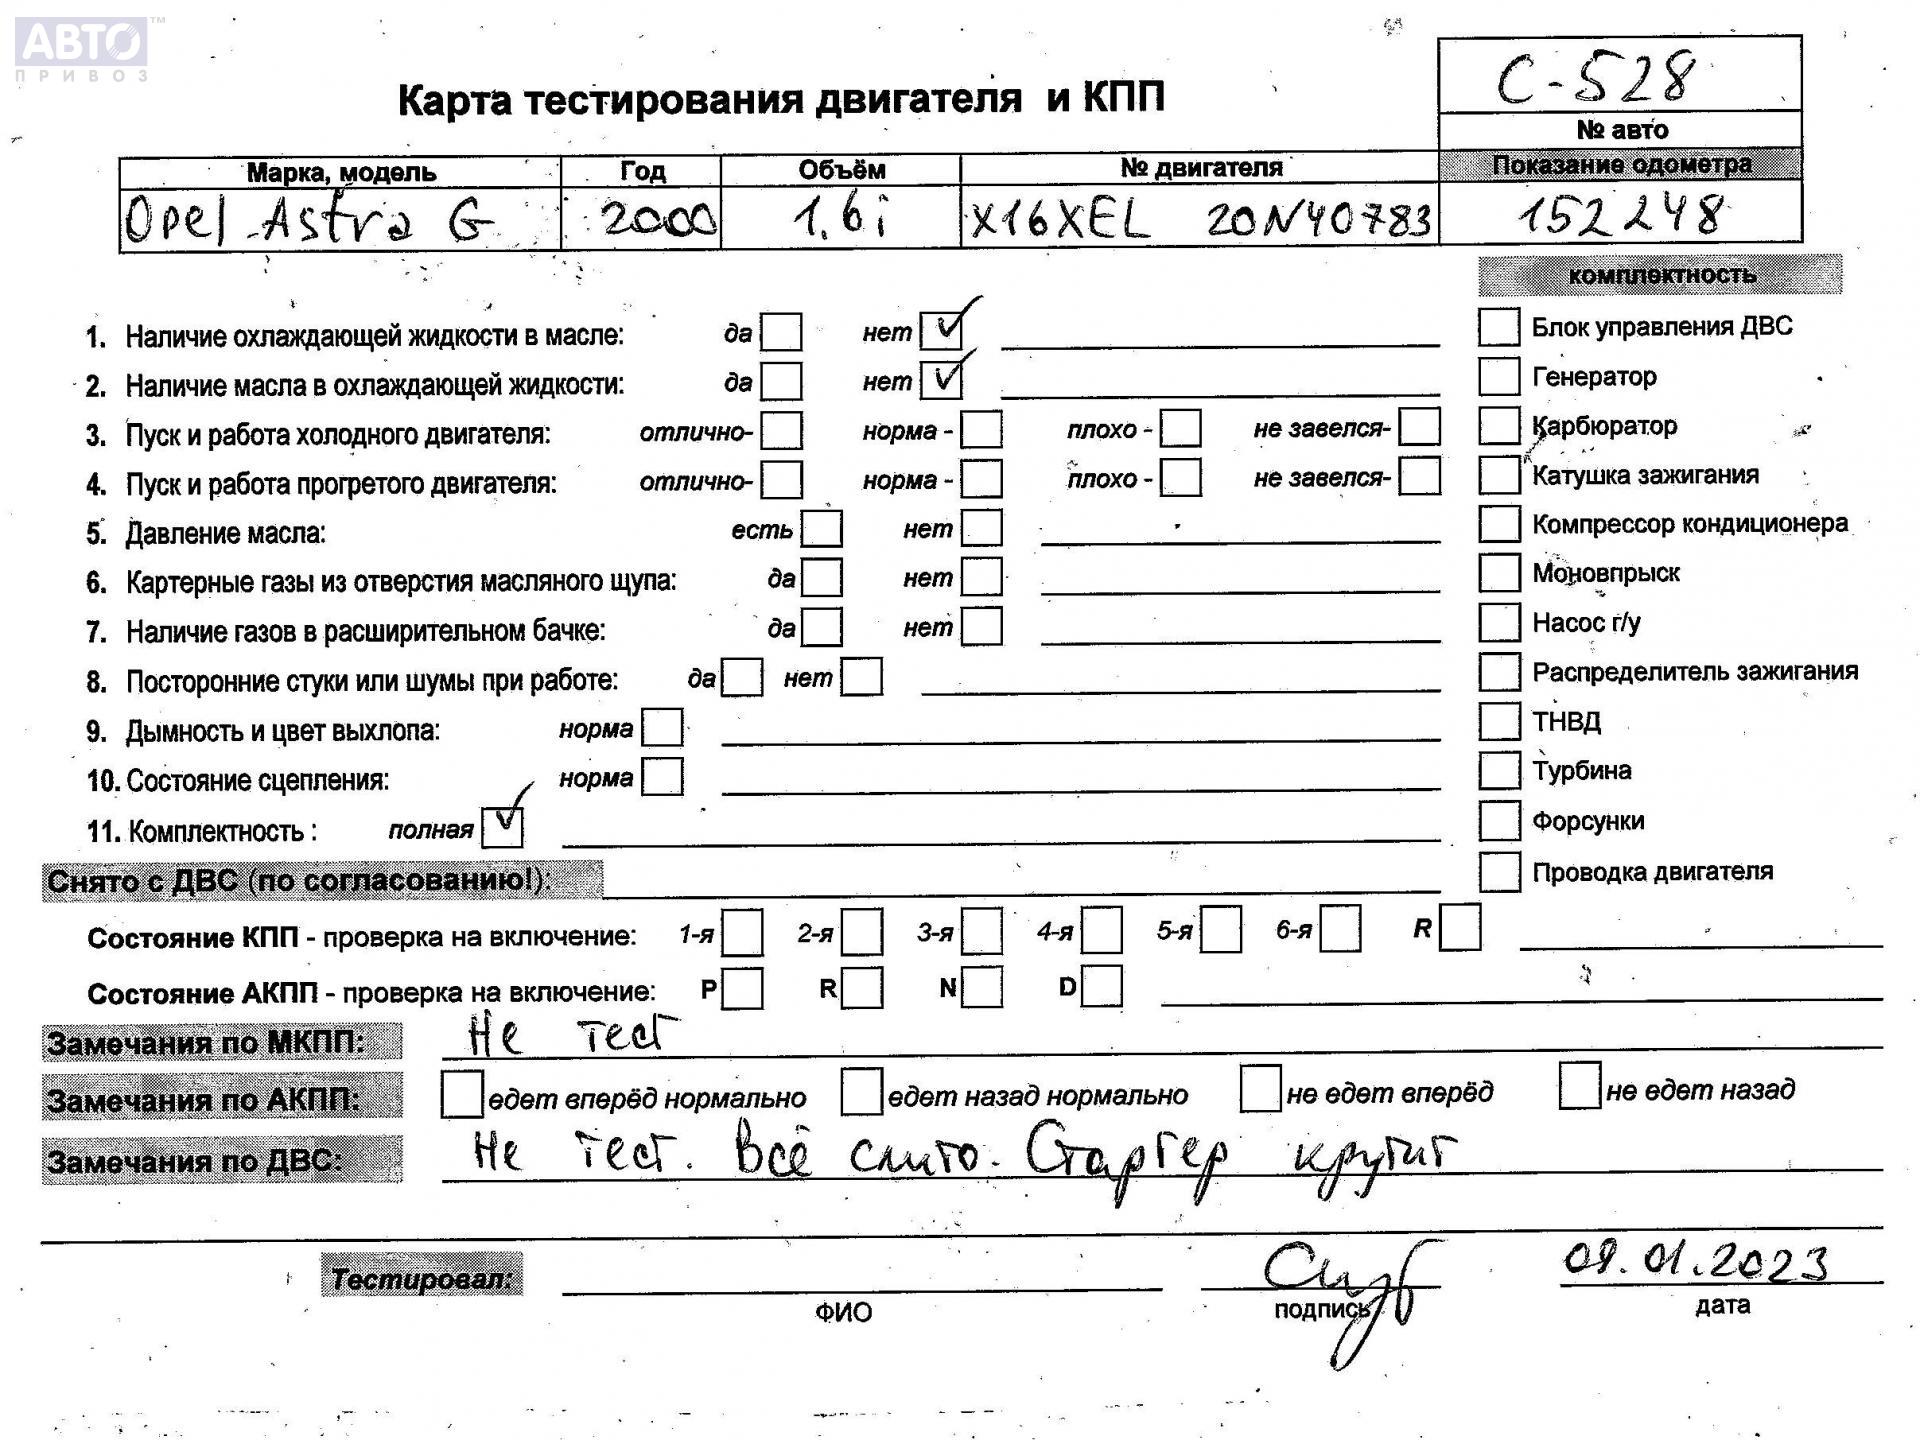 АВТО™
ПРИВОЗ
С-528
Карта тестирования двигателя и КПП
№ авто
Марка, модель Год Объём № двигателя Показание одометра
Opel Astra G 2000 1.6i X16XEL 20N40783 152248
комплектность
1. Наличие охлаждающей жидкости в масле: да нет ✓
Блок управления ДВС
2. Наличие масла в охлаждающей жидкости: да нет ✓
Генератор
3. Пуск и работа холодного двигателя: отлично- норма - плохо - не завелся-
Карбюратор
4. Пуск и работа прогретого двигателя: отлично- норма - плохо - не завелся-
Катушка зажигания
5. Давление масла: есть нет
Компрессор кондиционера
6. Картерные газы из отверстия масляного щупа: да нет
Моновпрыск
7. Наличие газов в расширительном бачке: да нет
Насос г/у
8. Посторонние стуки или шумы при работе: да нет
Распределитель зажигания
9. Дымность и цвет выхлопа: норма
ТНВД
10. Состояние сцепления: норма
Турбина
11. Комплектность : полная ✓
Форсунки
Снято с ДВС (по согласованию!):
Проводка двигателя
Состояние КПП - проверка на включение: 1-я 2-я 3-я 4-я 5-я 6-я R
Состояние АКПП - проверка на включение: P R N D
Замечания по МКПП: Не тест
Замечания по АКПП: едет вперёд нормально едет назад нормально не едет вперёд не едет назад
Замечания по ДВС: Не тест. Всё слито. Стартер крутит
Тестировал: 09.01.2023
ФИО подпись дата